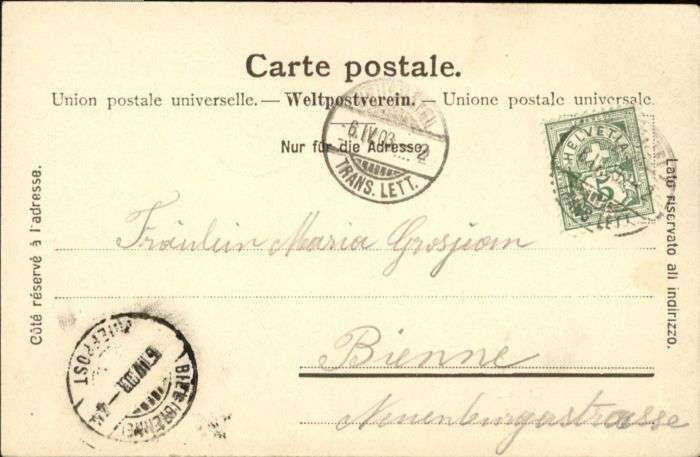 Carte postale.
Union postale universelle. — Weltpostverein. — Unione postale universale.
6.IV.03. - 2
TRANS. LETT.
Nur für die Adresse.
HELVETIA
5
TRANS. LETT.
Côté réservé à l'adresse.
Lato riservato all indirizzo.
Fräulein Maria Grosjean
Bienne
Neuenburgstrasse
BRIEFPOST
6.IV.03
BIEL (BIENNE)